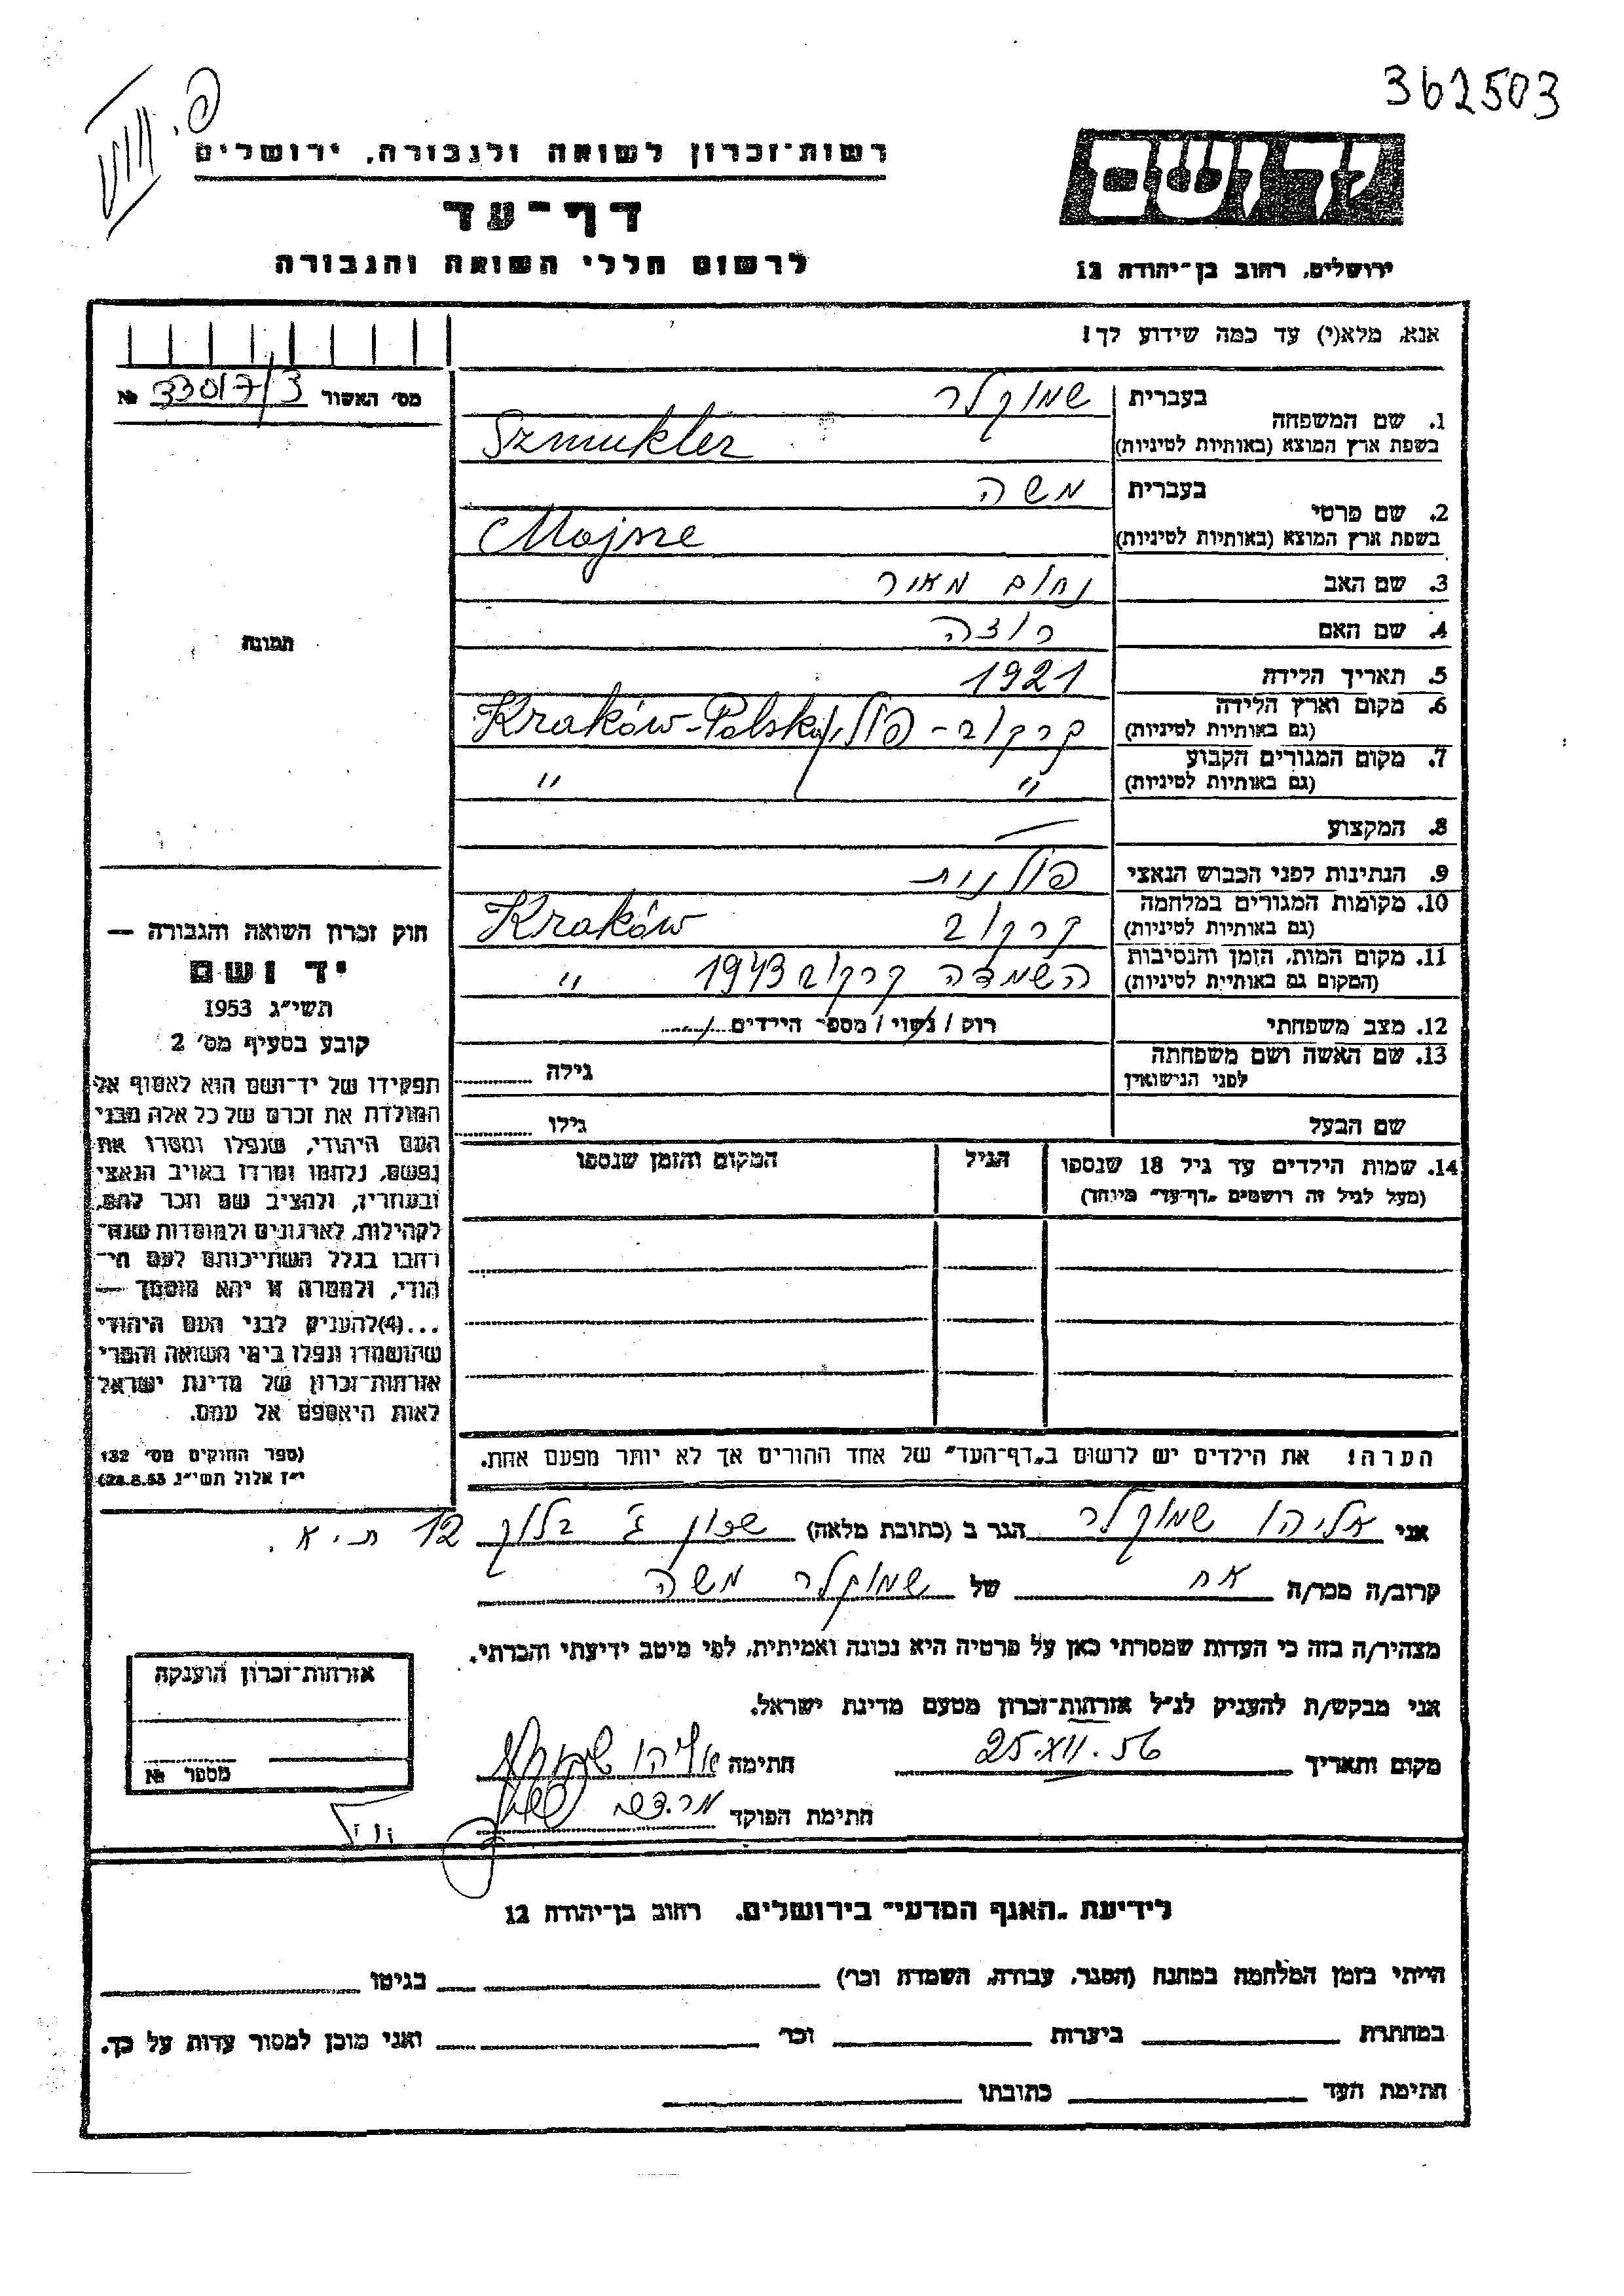 362503
רשות־זכרון לשואה ולגבורה, ירושלים
דף־עד
לרשום חללי השואה והגבורה
יד ושם
ירושלים, רחוב בן־יהודה 12
אנא, מלא(י) עד כמה שידוע לך!
מס׳ האשור 33017/3 №
תמונה
1. שם המשפחה
בעברית שמוקלר
בשפת ארץ המוצא (באותיות לטיניות) Szmukler
2. שם פרטי
בעברית משה
בשפת ארץ המוצא (באותיות לטיניות) Mojsze
3. שם האב נחום מאיר
4. שם האם
5. תאריך הלידה 1921
6. מקום וארץ הלידה קרקוב - פולין Kraków-Polska
(גם באותיות לטיניות)
7. מקום המגורים הקבוע " "
(גם באותיות לטיניות)
8. המקצוע —
9. הנתינות לפני הכבוש הנאצי פולנית
10. מקומות המגורים במלחמה קרקוב Kraków
(גם באותיות לטיניות)
11. מקום המות, הזמן והנסיבות השמדה קרקוב 1943 "
(המקום גם באותיות לטיניות)
12. מצב משפחתי רווק / נשוי / מספר הילדים
13. שם האשה ושם משפחתה גילה
לפני הנישואין
שם הבעל גילו
14. שמות הילדים עד גיל 18 שנספו הגיל המקום והזמן שנספו
(מעל לגיל זה רושמים „דף־עד" מיוחד)
הערה! את הילדים יש לרשום ב„דף־העד" של אחד ההורים אך לא יותר מפעם אחת.
חוק זכרון השואה והגבורה —
יד ושם
תשי״ג 1953
קובע בסעיף מס׳ 2
תפקידו של יד־ושם הוא לאסוף אל
המולדת את זכרם של כל אלה מבני
העם היהודי, שנפלו ומסרו את
נפשם, נלחמו ומרדו באויב הנאצי
ובעוזריו, ולהציב שם וזכר להם,
לקהילות, לארגונים ולמוסדות שנח־
רבו בגלל השתייכותם לעם הי־
הודי, ולמטרה זו יהא מוסמך —
...(4)להעניק לבני העם היהודי
שהושמדו ונפלו בימי השואה והמרי
אזרחות־זכרון של מדינת ישראל
לאות היאספם אל עמם.
(ספר החוקים מס׳ 132
י״ז אלול תשי״ג 28.8.53)
אני אליהו שמוקלר הגר ב (כתובת מלאה) שכון ג' בלוק 12 ת.א.
קרוב/ה מכר/ה אח של שמוקלר משה
מצהיר/ה בזה כי העדות שמסרתי כאן על פרטיה היא נכונה ואמיתית, לפי מיטב ידיעתי והכרתי.
אני מבקש/ת להעניק לנ״ל אזרחות־זכרון מטעם מדינת ישראל.
מקום ותאריך 25.XII.56 חתימה אליהו שמוקלר
חתימת הפוקד
אזרחות־זכרון הוענקה
מספר №
לידיעת „האגף המדעי" בירושלים. רחוב בן־יהודה 12
הייתי בזמן המלחמה במחנה (הסגר, עבודה, השמדה וכו׳) בגיטו
במחתרת ביערות וכו׳ ואני מוכן למסור עדות על כך.
חתימת העד כתובתו